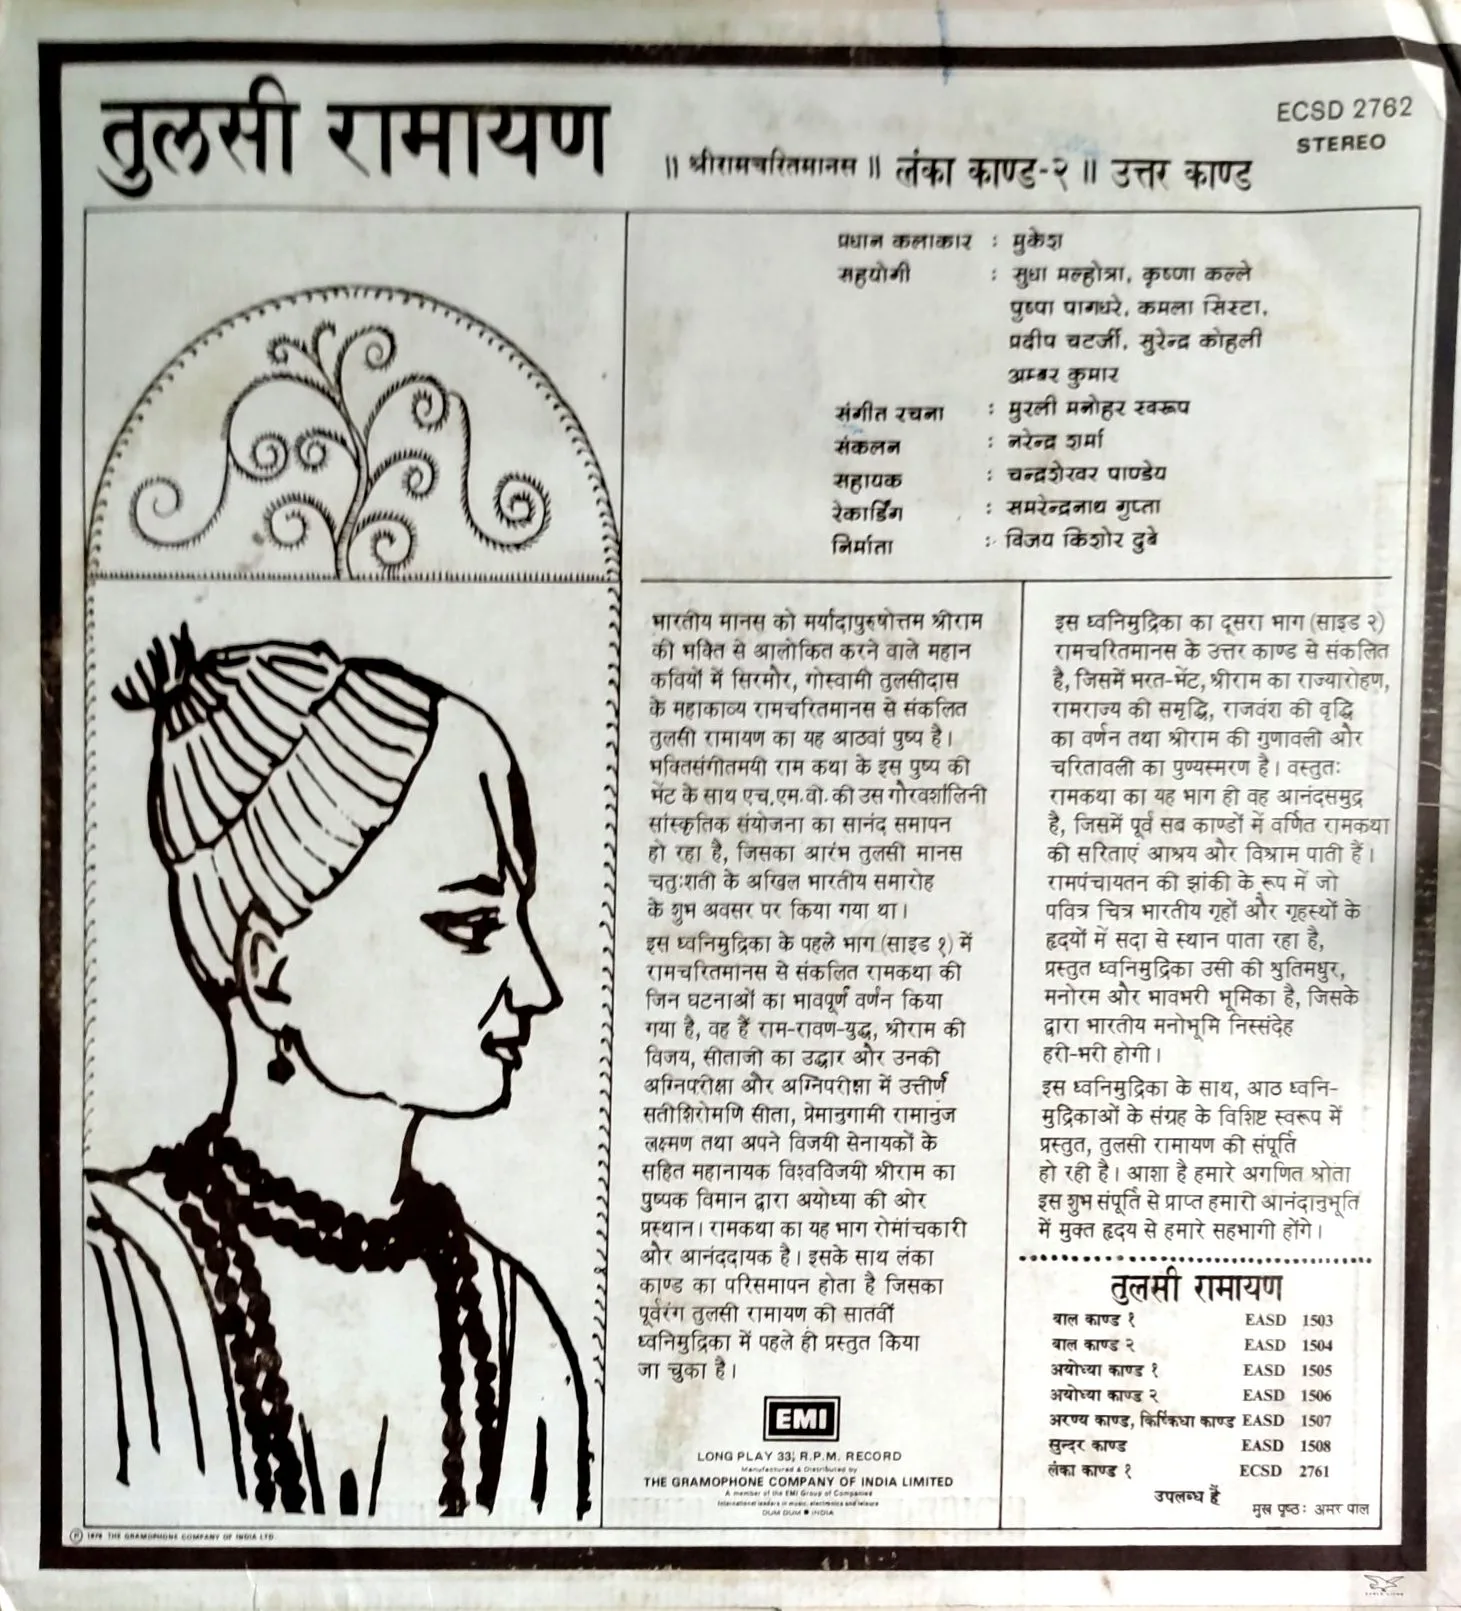 तुलसी रामायण
॥ श्रीरामचरितमानस ॥ लंका काण्ड-२ ॥ उत्तर काण्ड
ECSD 2762
STEREO
प्रधान कलाकार : मुकेश
सहयोगी : सुधा मल्होत्रा, कृष्णा कल्ले
पुष्पा पागधरे, कमला सिस्टा,
प्रदीप चटर्जी, सुरेन्द्र कोहली
अम्बर कुमार
संगीत रचना : मुरली मनोहर स्वरूप
संकलन : नरेन्द्र शर्मा
सहायक : चन्द्रशेखर पाण्डेय
रेकार्डिंग : समरेन्द्रनाथ गुप्ता
निर्माता : विजय किशोर दुबे
भारतीय मानस को मर्यादापुरुषोत्तम श्रीराम
की भक्ति से आलोकित करने वाले महान
कवियों में सिरमोर, गोस्वामी तुलसीदास
के महाकाव्य रामचरितमानस से संकलित
तुलसी रामायण का यह आठवां पुष्प है।
भक्तिसंगीतमयी राम कथा के इस पुष्प की
भेंट के साथ एच.एम.वी. की उस गौरवशालिनी
सांस्कृतिक संयोजना का सानंद समापन
हो रहा है, जिसका आरंभ तुलसी मानस
चतुःशती के अखिल भारतीय समारोह
के शुभ अवसर पर किया गया था।
इस ध्वनिमुद्रिका के पहले भाग (साइड १) में
रामचरितमानस से संकलित रामकथा की
जिन घटनाओं का भावपूर्ण वर्णन किया
गया है, वह हैं राम-रावण-युद्ध, श्रीराम की
विजय, सीताजी का उद्धार और उनकी
अग्निपरीक्षा और अग्निपरीक्षा में उत्तीर्ण
सतीशिरोमणि सीता, प्रेमानुगामी रामानुज
लक्ष्मण तथा अपने विजयी सेनायकों के
सहित महानायक विश्वविजयी श्रीराम का
पुष्पक विमान द्वारा अयोध्या की ओर
प्रस्थान। रामकथा का यह भाग रोमांचकारी
और आनंददायक है। इसके साथ लंका
काण्ड का परिसमापन होता है जिसका
पूर्वरंग तुलसी रामायण की सातवीं
ध्वनिमुद्रिका में पहले ही प्रस्तुत किया
जा चुका है।
EMI
LONG PLAY 33⅓ R.P.M. RECORD
Manufactured & Distributed by
THE GRAMOPHONE COMPANY OF INDIA LIMITED
A member of the EMI Group of Companies
International leaders in music, electronics and leisure
DUM DUM ● INDIA
इस ध्वनिमुद्रिका का दूसरा भाग (साइड २)
रामचरितमानस के उत्तर काण्ड से संकलित
है, जिसमें भरत-भेंट, श्रीराम का राज्यारोहण,
रामराज्य की समृद्धि, राजवंश की वृद्धि
का वर्णन तथा श्रीराम की गुणावली और
चरितावली का पुण्यस्मरण है। वस्तुतः
रामकथा का यह भाग ही वह आनंदसमुद्र
है, जिसमें पूर्व सब काण्डों में वर्णित रामकथा
की सरिताएं आश्रय और विश्राम पाती हैं।
रामपंचायतन की झांकी के रूप में जो
पवित्र चित्र भारतीय गृहों और गृहस्थों के
हृदयों में सदा से स्थान पाता रहा है,
प्रस्तुत ध्वनिमुद्रिका उसी की श्रुतिमधुर,
मनोरम और भावभरी भूमिका है, जिसके
द्वारा भारतीय मनोभूमि निस्संदेह
हरी-भरी होगी।
इस ध्वनिमुद्रिका के साथ, आठ ध्वनि-
मुद्रिकाओं के संग्रह के विशिष्ट स्वरूप में
प्रस्तुत, तुलसी रामायण की संपूर्ति
हो रही है। आशा है हमारे अगणित श्रोता
इस शुभ संपूर्ति से प्राप्त हमारी आनंदानुभूति
में मुक्त हृदय से हमारे सहभागी होंगे।
तुलसी रामायण
बाल काण्ड १ EASD 1503
बाल काण्ड २ EASD 1504
अयोध्या काण्ड १ EASD 1505
अयोध्या काण्ड २ EASD 1506
अरण्य काण्ड, किष्किंधा काण्ड EASD 1507
सुन्दर काण्ड EASD 1508
लंका काण्ड १ ECSD 2761
उपलब्ध हैं
मुख पृष्ठ: अमर पाल
THE GRAMOPHONE COMPANY OF INDIA LTD.